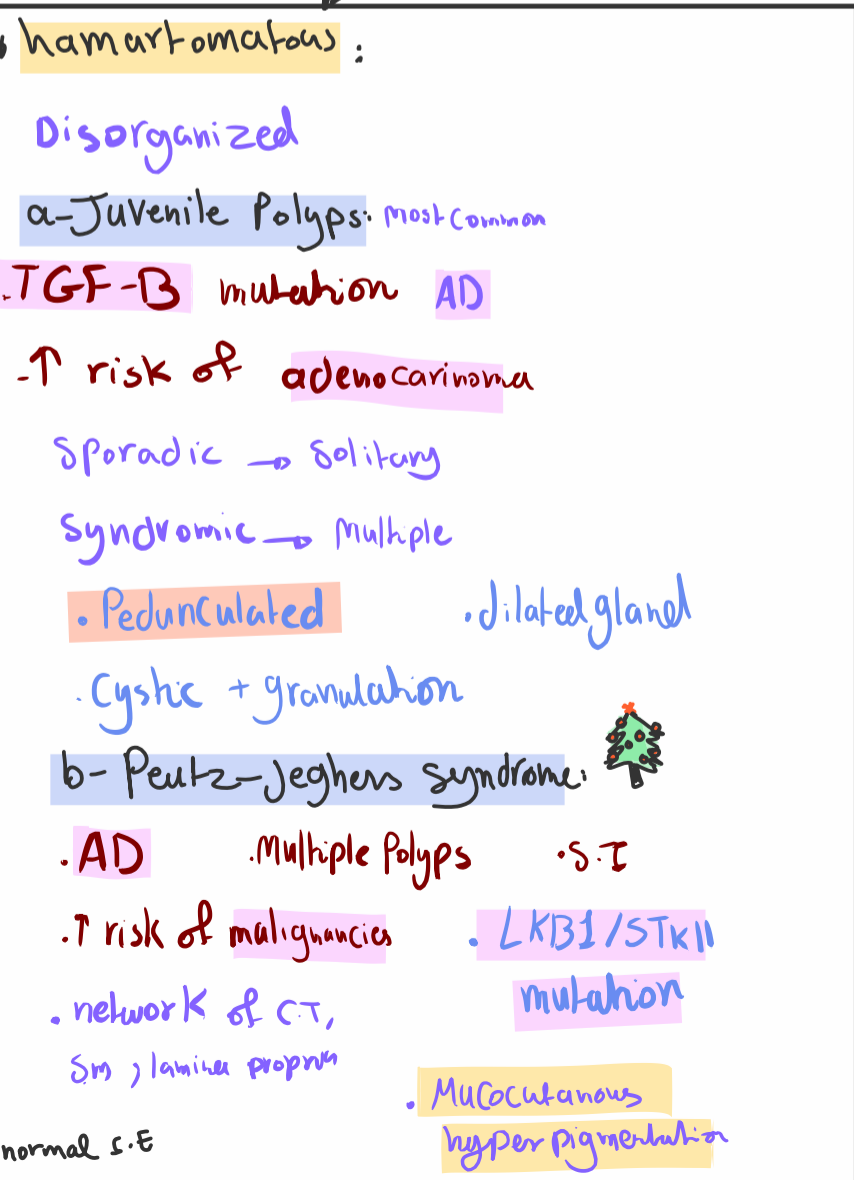 • hamartomatous :
Disorganized
a-Juvenile Polyps: most common
.TGF-B mutation AD
-↑ risk of adenocarinoma
Sporadic → Solitary
Syndromic → Multiple
• Pedunculated • dilated gland
. Cystic + granulation
b- Peutz-Jeghers syndrome:
. AD .Multiple Polyps • S.I
.↑ risk of malignancies . LKB1/STK11
mutation
. network of C.T,
Sm , lamina propria
. Mucocutanous
hyperpigmentation
normal S.E